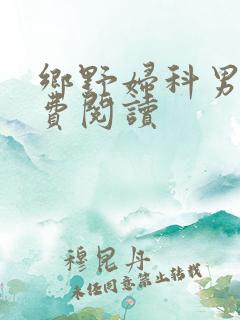 鄉野婦科男
費閱讀
穆昆丹
未经同意禁止转载